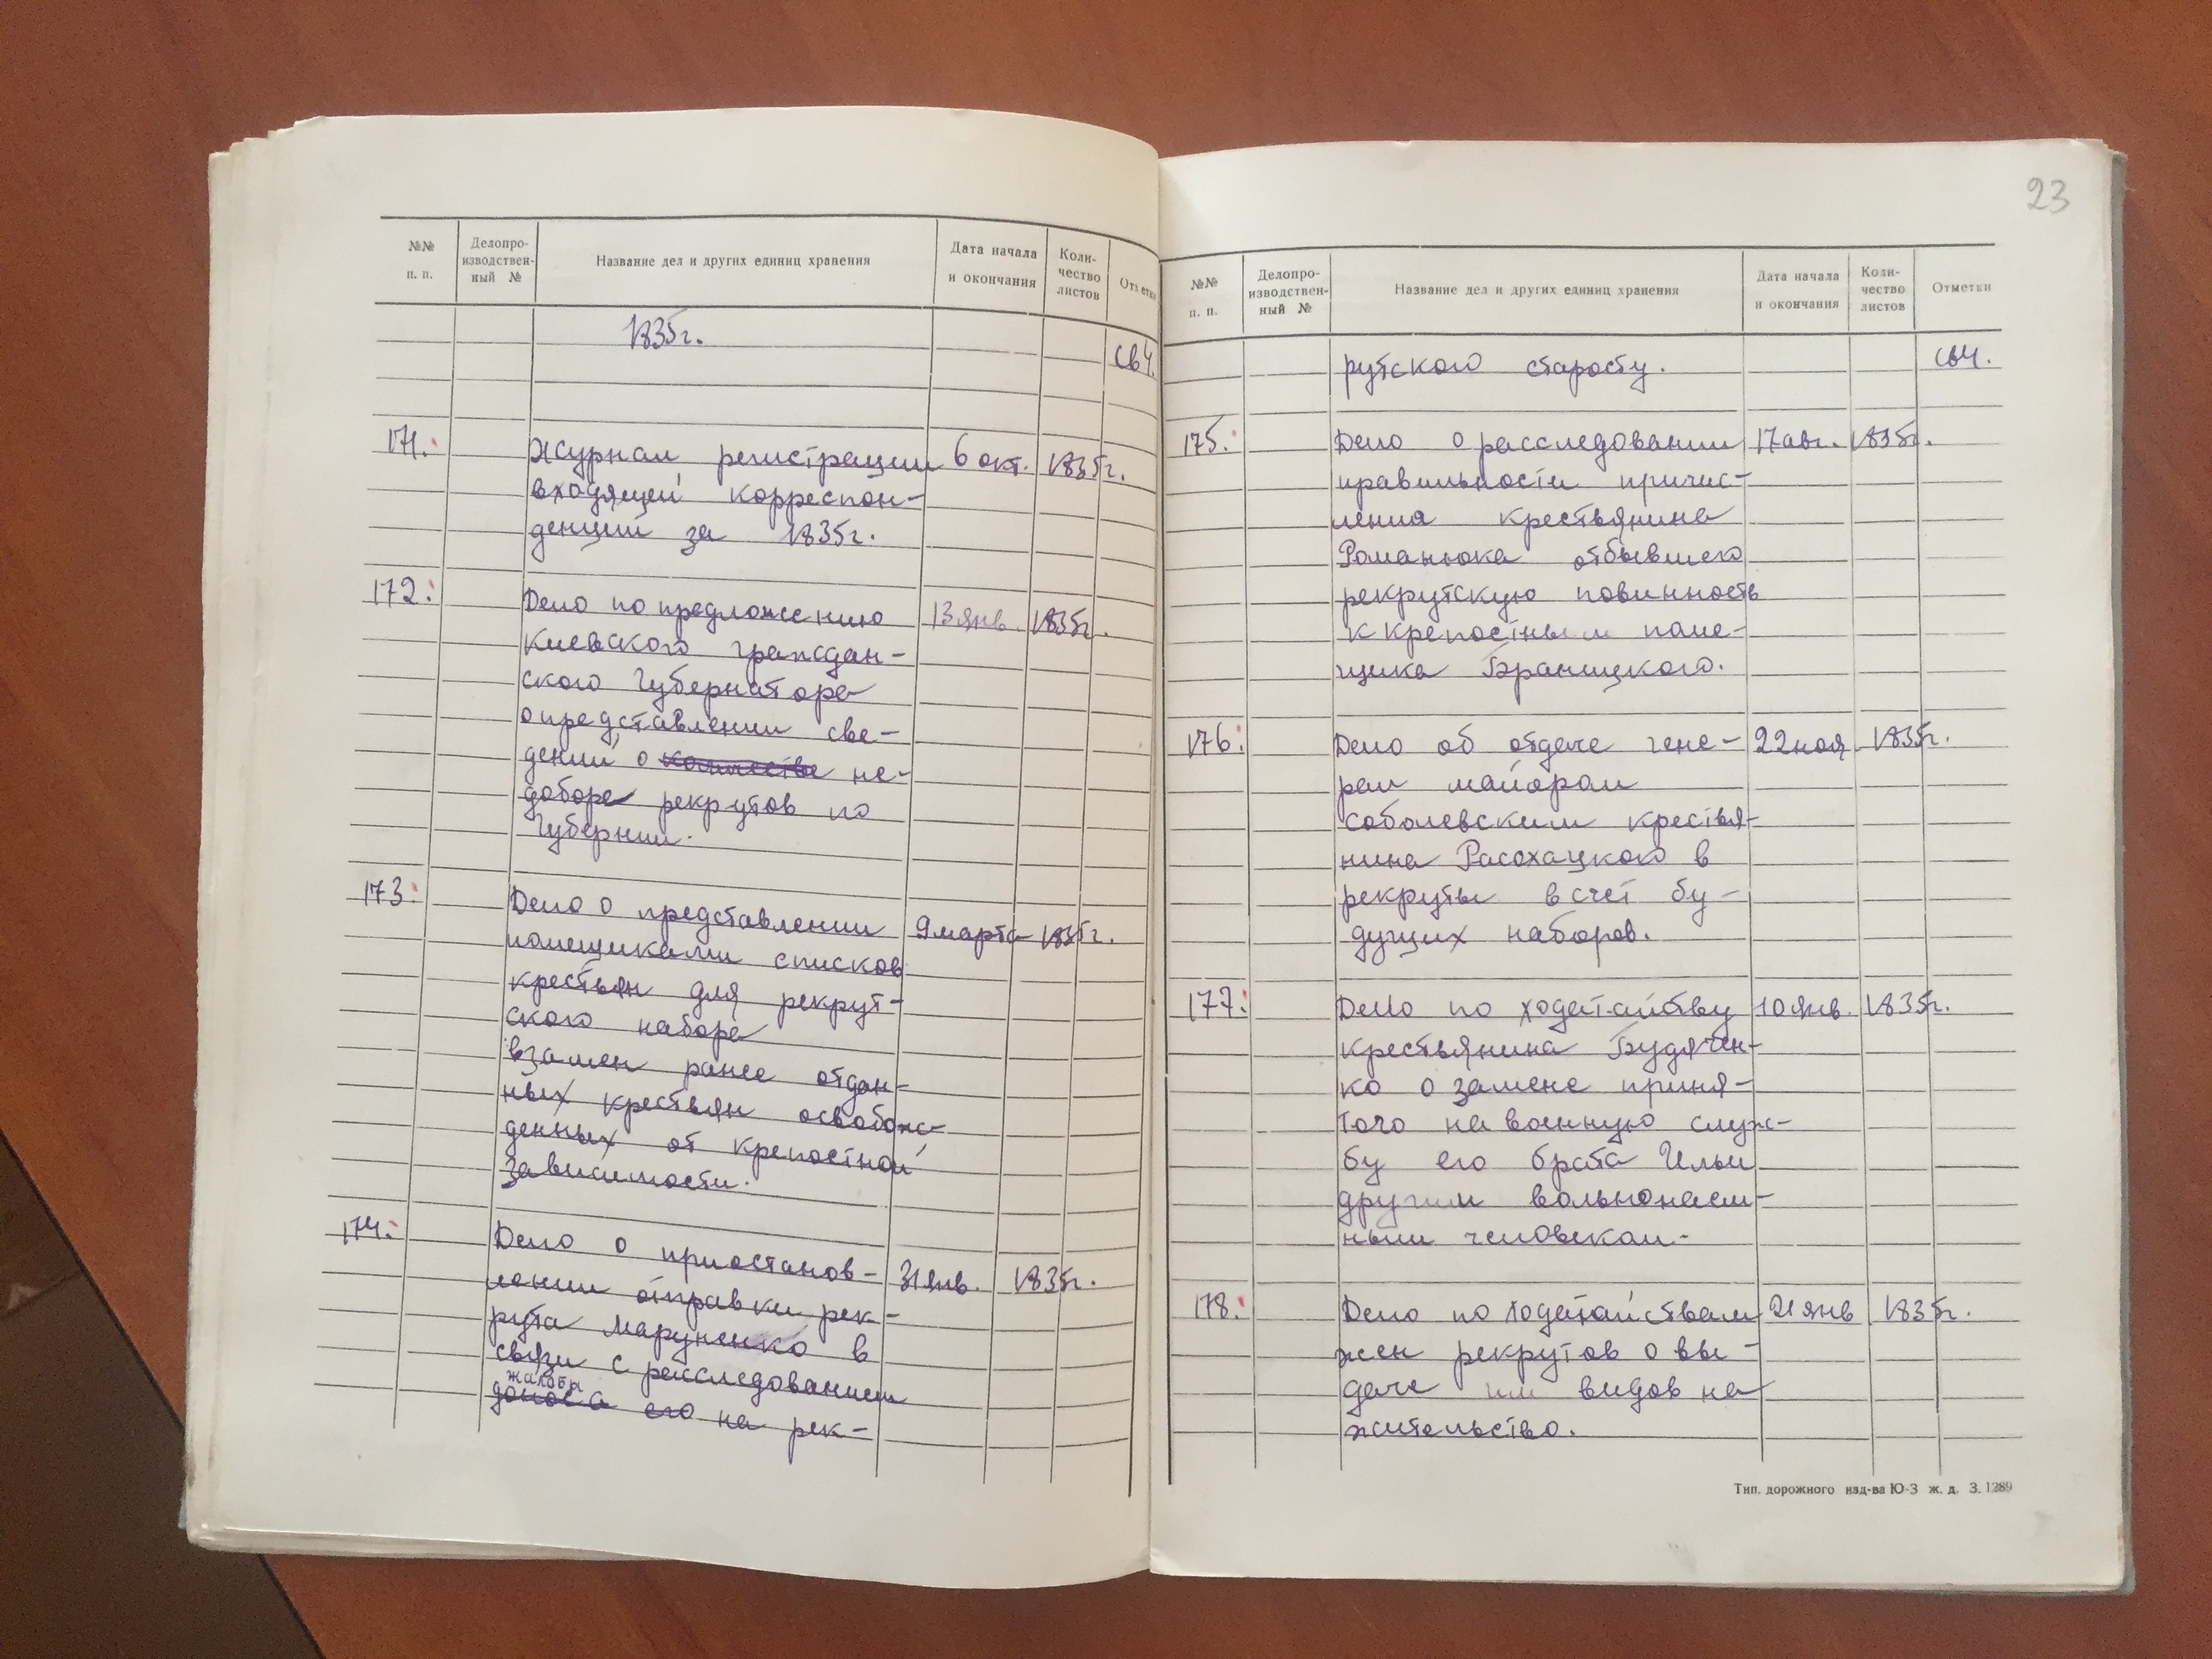 №№ п. п.
Делопро-
изводствен-
ный №
Название дел и других единиц хранения
Дата начала
и окончания
Коли-
чество
листов
Отметки
1835г.
св 4.
171.
Журнал регистрации 6 окт. 1835г.
входящей корреспон-
денций за 1835г.
172.
Дело по предложению 13 янв. 1835г.
Киевского граждан-
ского Губернатора
о представлении све-
дений о количестве не-
доборе рекрутов по
Губернии.
173.
Дело о представлении 9 марта 1835г.
помещиками списков
крестьян для рекрут-
ского набора
взамен ранее отдан-
ных крестьян освобож-
денных от крепостной
зависимости.
174.
Дело о приостанов- 31 янв. 1835г.
лении отправки рек-
рута Маруненко в
связи с расследованием
жалобы
доноса его на рек-
23
№№ п. п.
Делопро-
изводствен-
ный №
Название дел и других единиц хранения
Дата начала
и окончания
Коли-
чество
листов
Отметки
рутского старосту. св4.
175. Дело о расследовании 17 авг. 1835г.
правильности причис-
ления крестьянина
Романюка отбывшего
рекрутскую повинность
к крепостным поме-
щика Браницкого.
176. Дело об отдаче гене- 22 ноя. 1835г.
рал майором
Соболевским крестья-
нина Расохацкого в
рекруты в счет бу-
дущих наборов.
177. Дело по ходатайству 10 янв. 1835г.
крестьянина Будячен-
ко о замене приня-
того на военную служ-
бу его брата Ильи
другим вольнонаем-
ным человеком.
178. Дело по ходатайствам 21 янв 1835г.
жен рекрутов о вы-
даче им видов на
жительство.
Тип. дорожного изд-ва Ю-З ж. д. З. 1289